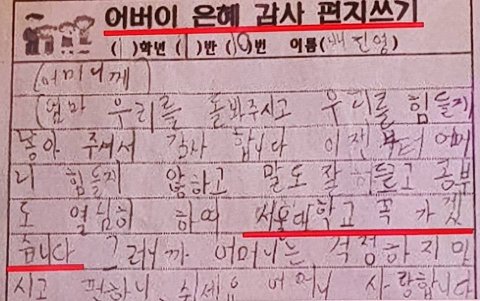 어버이 은혜 감사 편지쓰기
(1)학년 (1)반 (19)번 이름(배진영)
(어머니께)
(엄마 우리를 돌봐주시고 우리를 힘들지
놓아 주셔서 감사 합니다 이젠부터 어머
니 힘들지 않하고 말도 잘 히들고 공부
도 열님히 하여 서울대학고 꼭 가겠
습니다 그러니까 어머니는 걱정하지 말
시고 편하니 쉬세요 어머니 사랑합니다